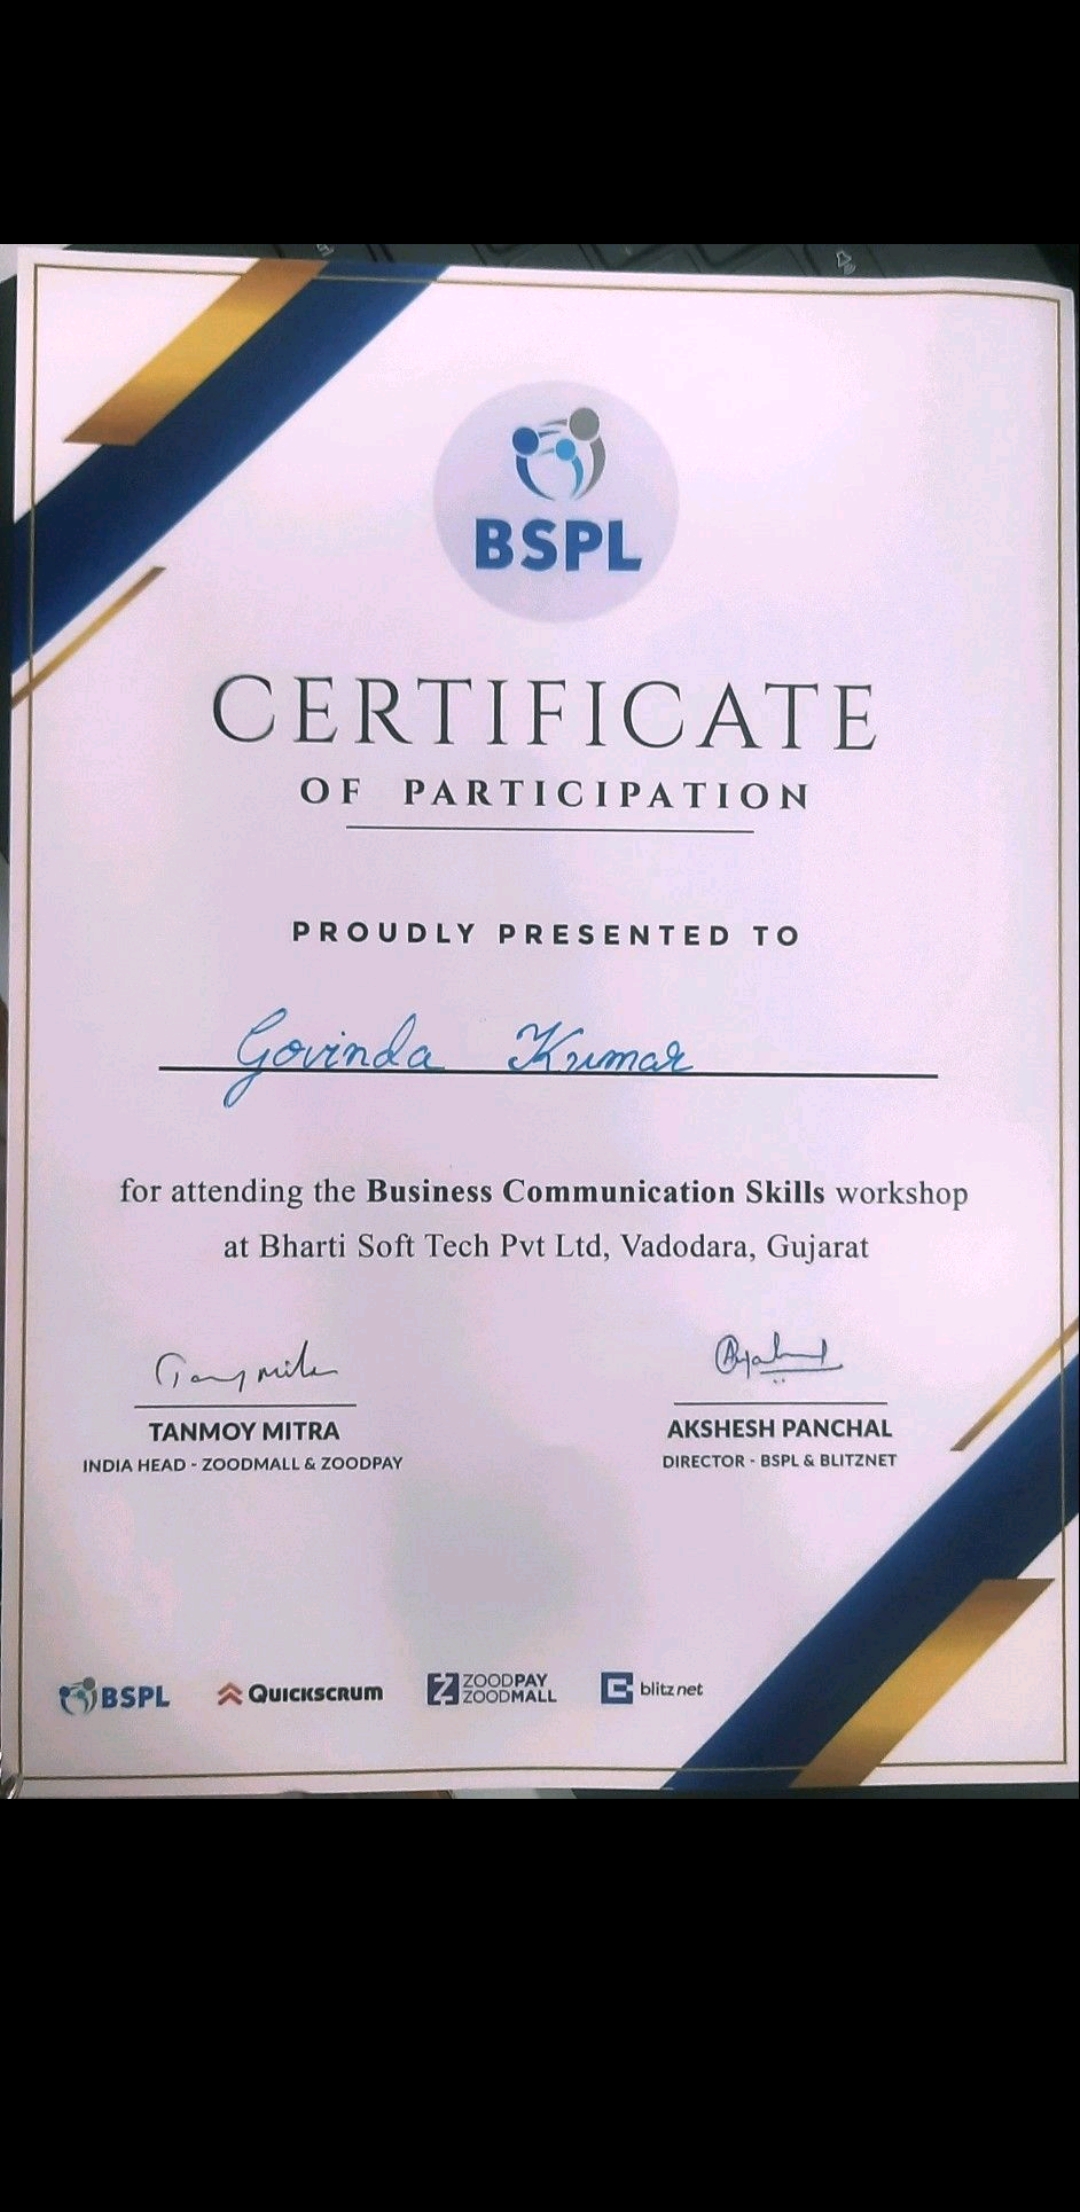 BSPL
CERTIFICATE
OF PARTICIPATION
PROUDLY PRESENTED TO
Govinda Kumar
for attending the Business Communication Skills workshop
at Bharti Soft Tech Pvt Ltd, Vadodara, Gujarat
TANMOY MITRA
INDIA HEAD - ZOODMALL & ZOODPAY
AKSHESH PANCHAL
DIRECTOR - BSPL & BLITZNET
BSPL
QUICKSCRUM
ZOODPAY
ZOODMALL
blitznet